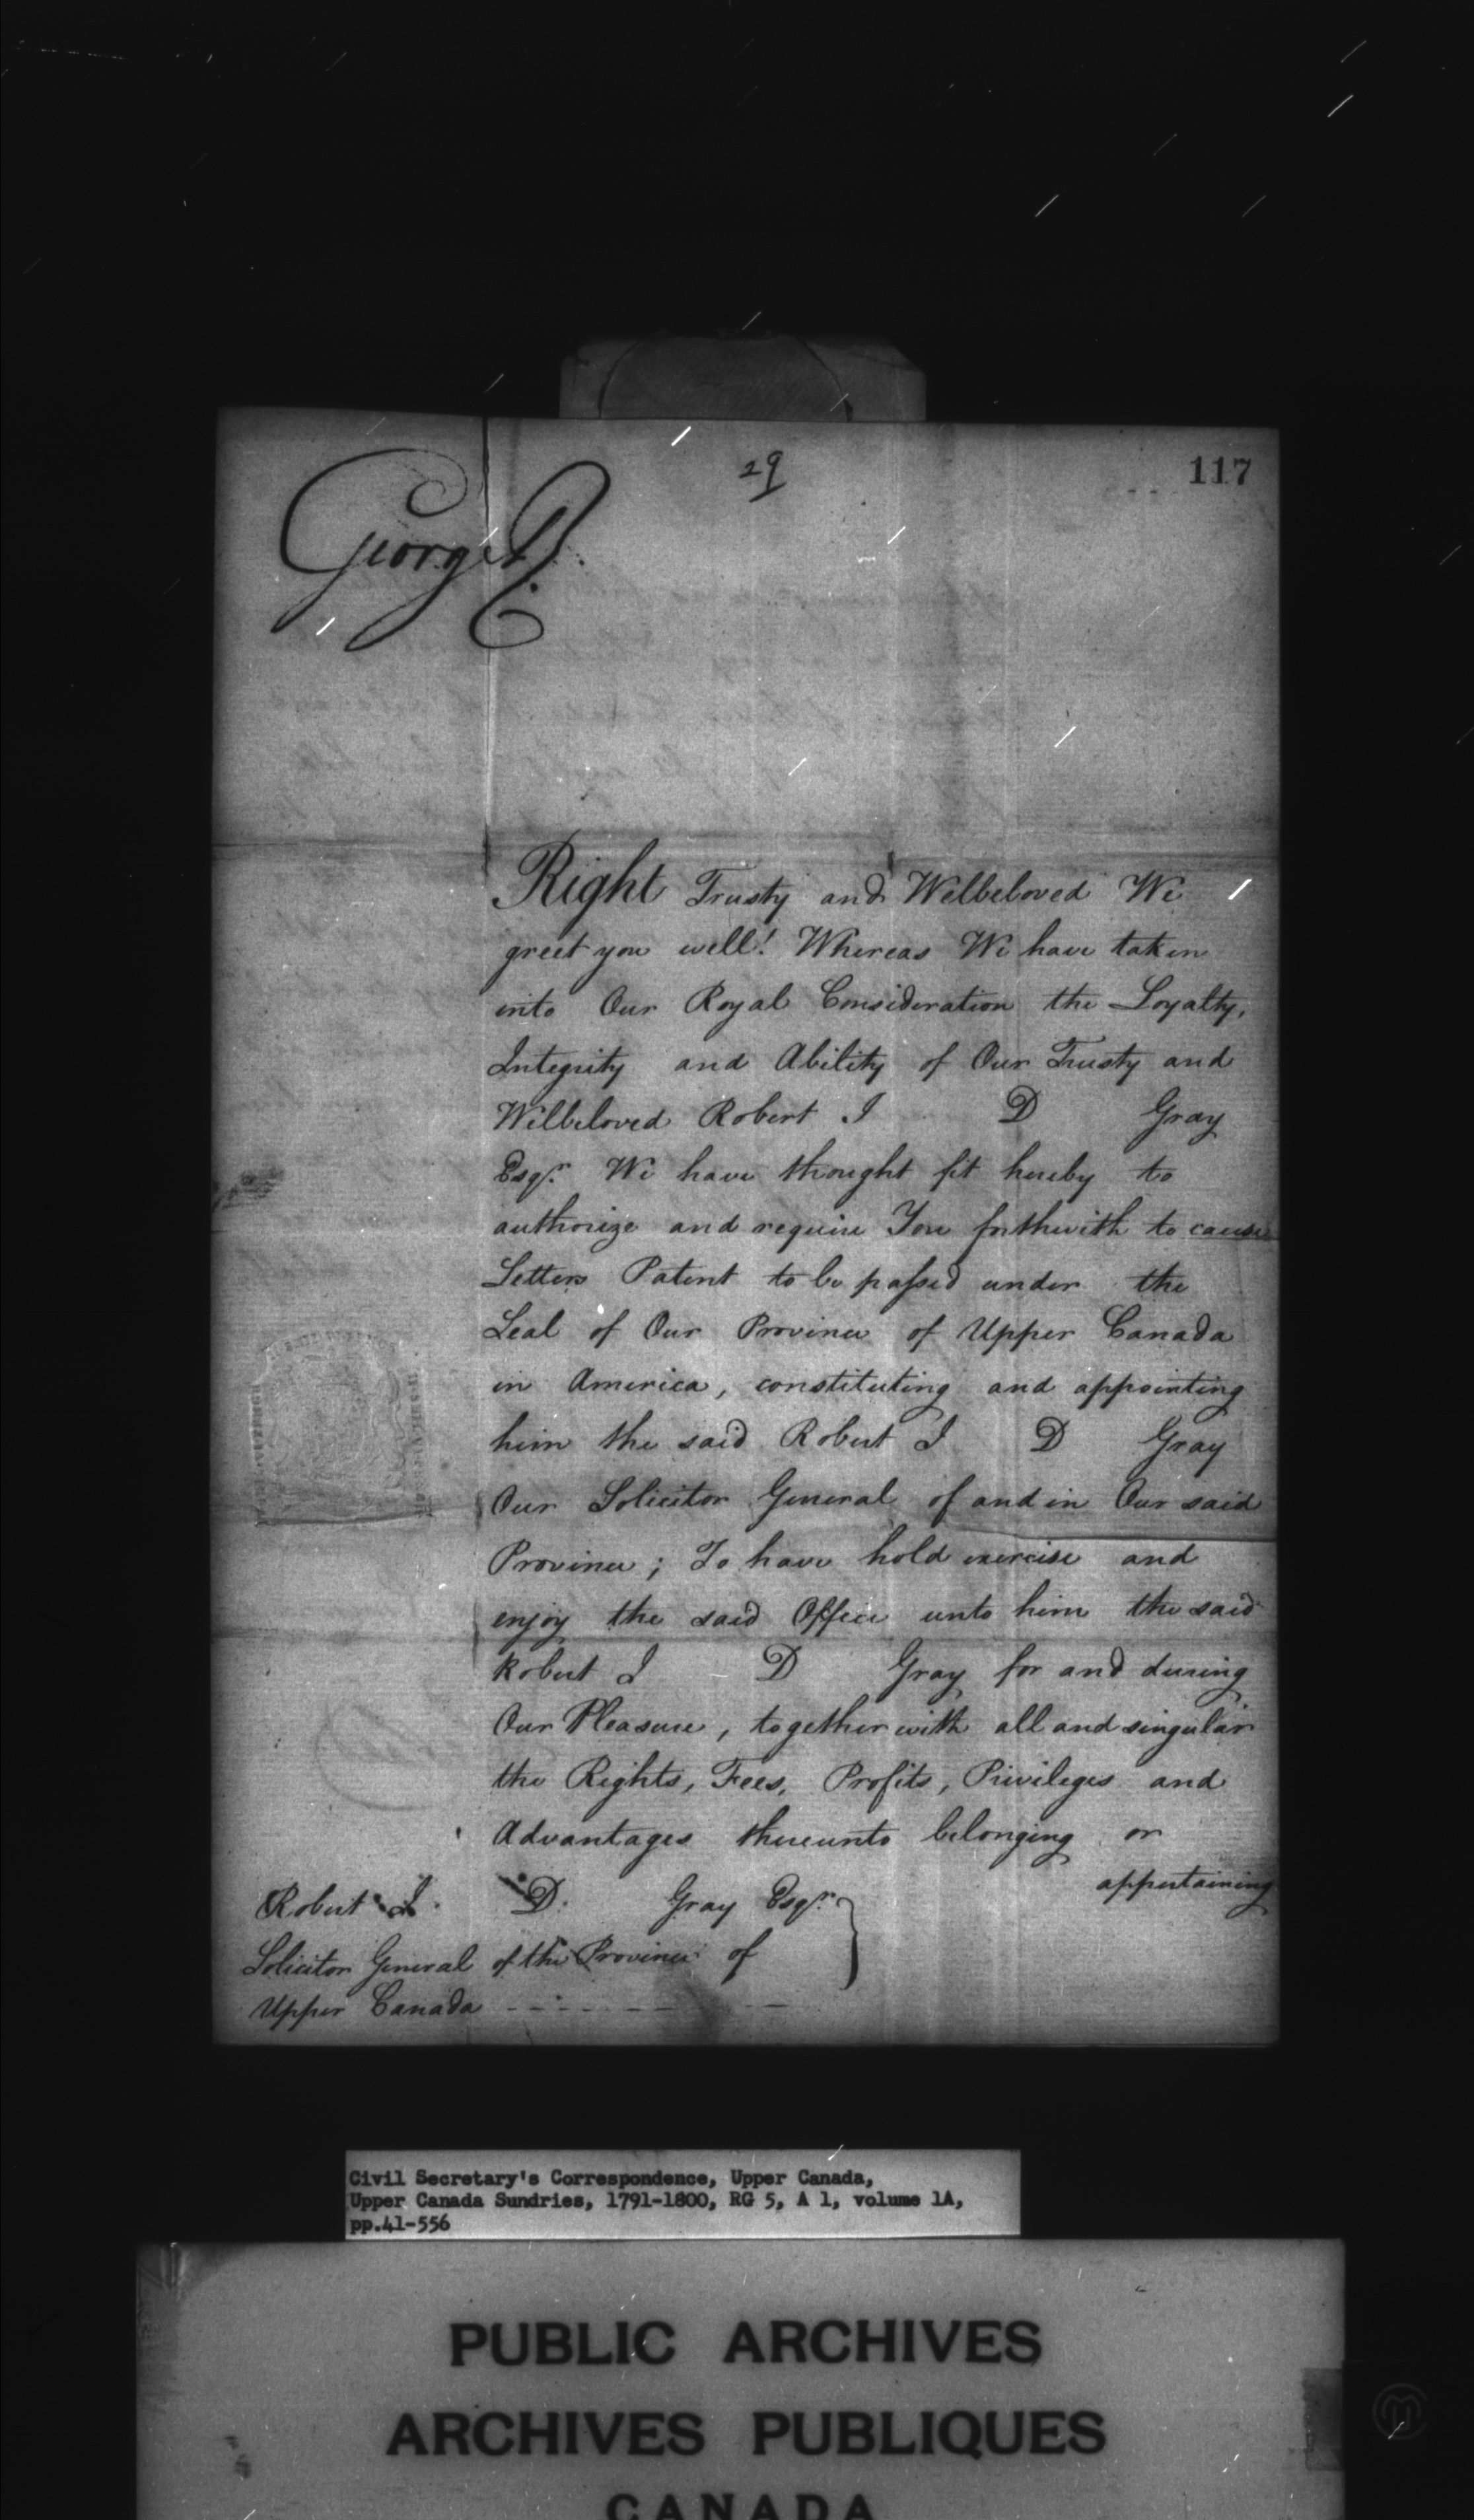 29
117
George R
Right Trusty and Welbeloved We
greet you well! Whereas We have taken
into Our Royal Consideration the Loyalty,
Integrity and Ability of Our Trusty and
Welbeloved Robert I D Gray
Esqr. We have thought fit hereby to
authorize and require You forthwith to cause
Letters Patent to be passed under the
Seal of Our Province of Upper Canada
in America, constituting and appointing
him the said Robert I D Gray
Our Solicitor General of and in Our said
Province; To have hold exercise and
enjoy the said Office unto him the said
Robert I D Gray for and during
Our Pleasure, together with all and singular
the Rights, Fees, Profits, Privileges and
Advantages thereunto belonging or
appertaining
Robert I. D. Gray Esqr.
Solicitor General of the Province of
Upper Canada
Civil Secretary's Correspondence, Upper Canada,
Upper Canada Sundries, 1791-1800, RG 5, A 1, volume 1A,
pp.41-556
PUBLIC ARCHIVES
ARCHIVES PUBLIQUES
CANADA